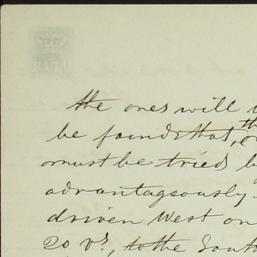 BATH
the ores will
be found that, the
must be tried b
advantageously
driven West on
20 vs., to the South